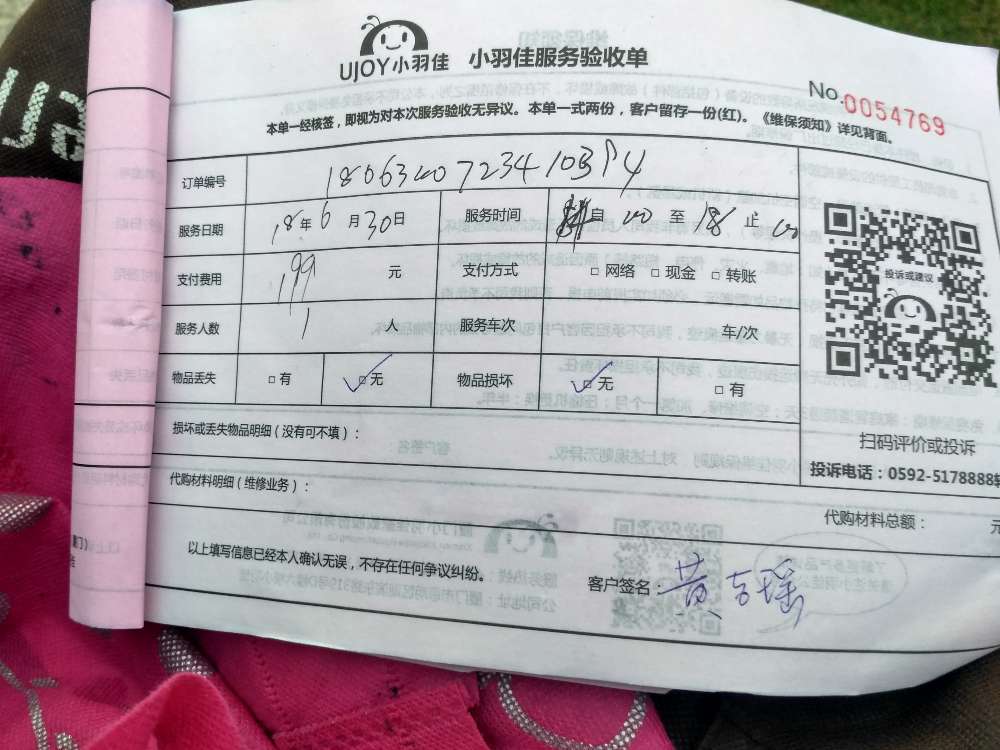 UJOY小羽佳 小羽佳服务验收单
No.0054769
本单一经核签，即视为对本次服务验收无异议。本单一式两份，客户留存一份(红)。《维保须知》详见背面。
订单编号
服务日期 18年6月30日 服务时间 自 00 至 18 止 00
支付费用 199 元 支付方式 □网络 □现金 □转账
服务人数 1 人 服务车次 车/次
物品丢失 □有 ☑无 物品损坏 ☑无 □有
损坏或丢失物品明细（没有可不填）：
代购材料明细（维修业务）：
代购材料总额： 元
投诉或建议
扫码评价或投诉
投诉电话：0592-5178888转
以上填写信息已经本人确认无误，不存在任何争议纠纷。
客户签名：黄 瑶